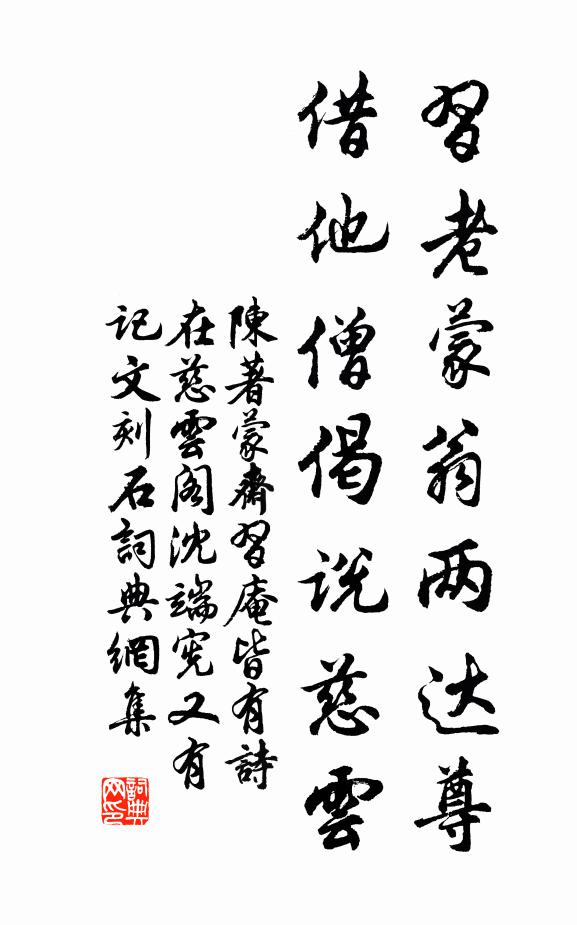 習老蒙翁两达尊
借他僧偈说慈雲
陳著蒙齋習庵皆有詩
在慈雲阁沈端宪又有
记文刻石詞典網集
詞典网印